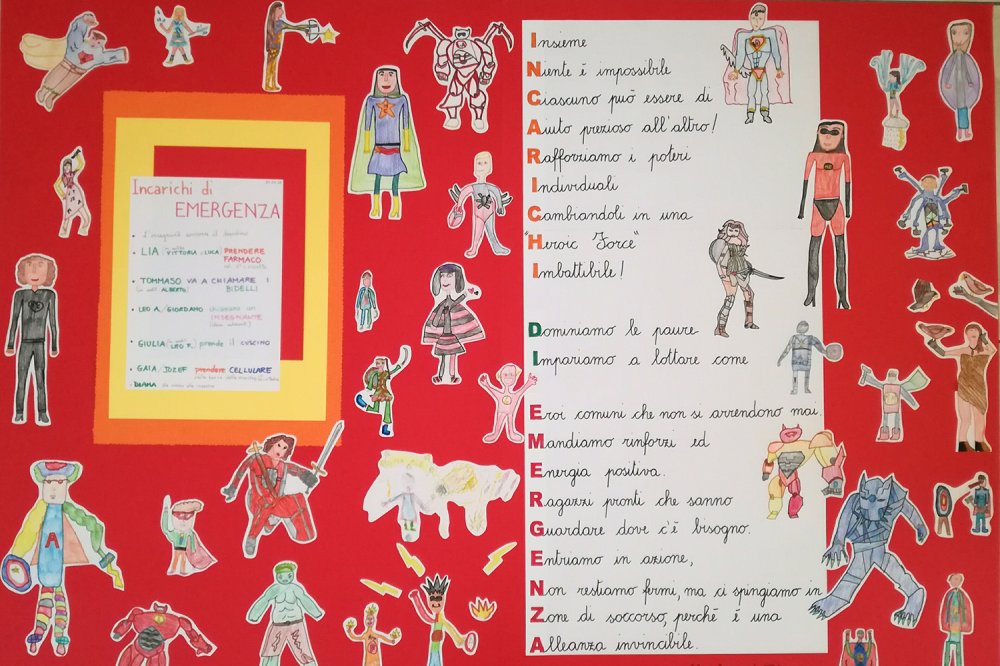 Incarichi di
EMERGENZA
LIA VITTORIA LUCA PRENDERE
FARMACO
TOMMASO VA A CHIAMARE I
ALBERTO BIDELLI
LEO A. GIORDANO
INSEGNANTE
GIULIA LEO F. prende il CUSCINO
GAIA JOZEF prendere CELLULARE
DIANA
Insieme
Niente è impossibile
Ciascuno può essere di
Aiuto prezioso all'altro!
Rafforziamo i poteri
Individuali
Cambiandoli in una
"Heroic Force"
Imbattibile!
Dominiamo le paure
Impariamo a lottare come
Eroi comuni che non si arrendono mai.
Mandiamo rinforzi ed
Energia positiva.
Ragazzi pronti che sanno
Guardare dove c'è bisogno.
Entriamo in azione,
Non restiamo fermi, ma ci spingiamo in
Zone di soccorso, perché è una
Alleanza invincibile.
A